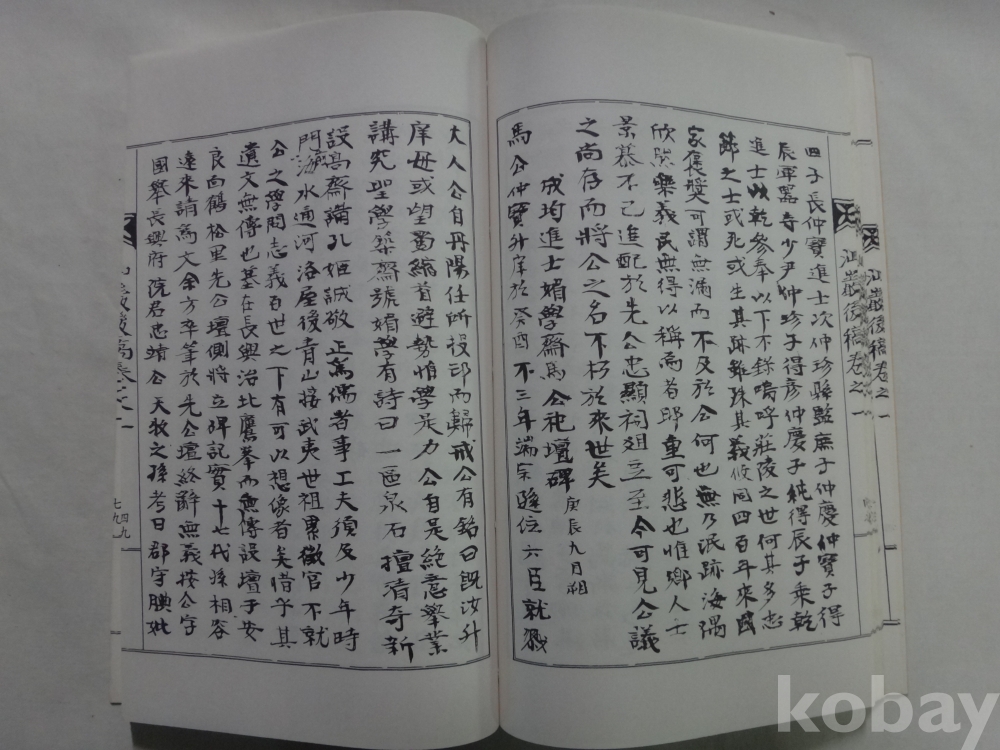 四子長仲寶進士次仲珍縣監庶子仲慶仲寶子得
辰軍器寺少尹仲珍子得彥仲慶子純得辰子秉乾
進士以乾參奉以下不錄嗚呼莊陵之世何其多忠
節之士或死或生其跡雖殊其義攸同四百年來國
家褒奬可謂無漏而不及於公何也無乃泯跡海隅
欣然樂義民無得以稱焉者耶重可悲也惟鄉人士
景慕不已進配於先公忠顯祠廹至今可見公議
之尚存而將公之名不朽於來世矣
成均進士媚學齋馬公祀壇碑 庚辰九月朔
馬公仲寶升庠於癸酉不三年端宗遜位六臣就
大人公自丹陽任所投印而歸戒公有銘曰旣汝升
庠毋或望蜀縮首避勢惟學是力公自是絕意擧業
講究聖學築齋號媚學有詩曰一區泉石擅清奇新
設高齋講孔姬誠敬正爲儒者事工夫須及少年時
門海水通河洛屋後青山接武夷世祖累徵官不就
公之學問志義百世之下有可以想像者矣惜乎其
遺文無傳也墓在長興治北鷹峯而無傳設壇于安
良面鶴松里先公壇側將立碑記實十七代孫相容
遠來請爲文余方卒筆於先公壇終辭無義按公字
國擧長興府院君忠靖公天牧之孫考曰郡守腆妣
江巖後稿卷之一
江巖後稿卷之一
七九
四九
kobay